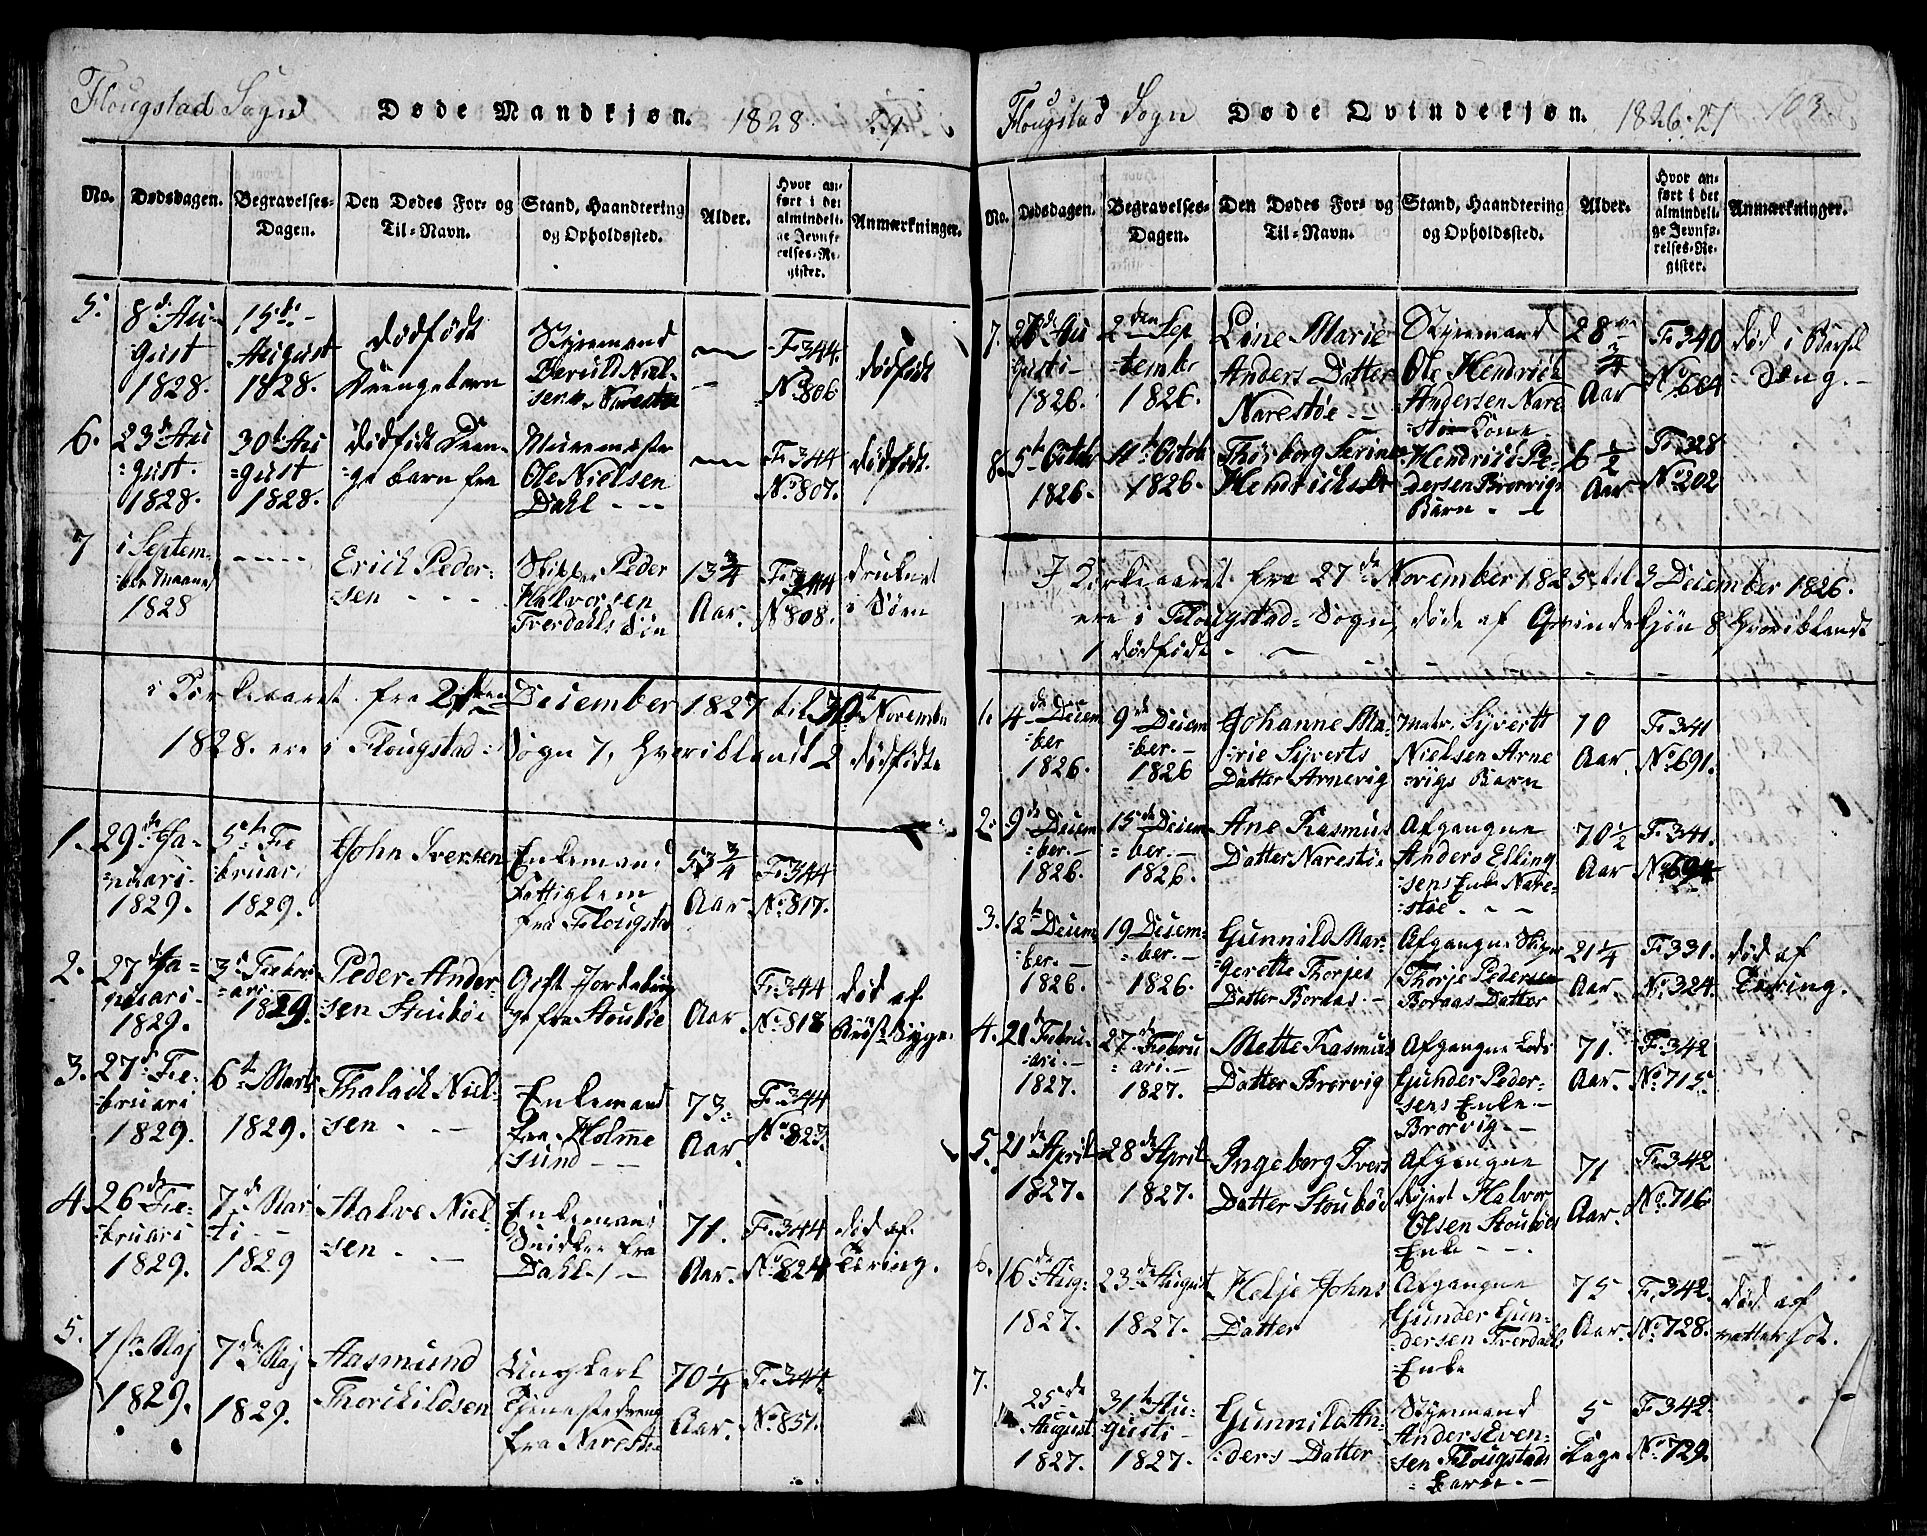 Flougstad Sogn Døde Mandkjøn. 1828 29
No. Dødsdagen. Begravelses-Dagen. Den Dødes For- og Til-Navn. Stand, Haandtering og Opholdssted. Alder. Hvor anført i det almindelige Jevnførelses-Register. Anmærkninger.
5. 8de August 1828. 15de August 1828. dødfødt Drengebarn Styremand Beruld Nielsen Narestøe — F. 344. No. 806. dødfødt
6. 23de August. 1828. 30te August 1828. dødfødt Drengebarn fra Ole Nielsen Dahl — F. 344 No. 807. dødfødt.
7 i September Maaned 1828 — Erich Pedersen Skipper Peder Halvorsen Tverdahls Søn 13 3/4 Aar. F. 344 No. 808. druknet i Søen
i Kirkeaaret fra 2den December 1827 til 30te November
1828. ere i Flougstad Sogn 7, hvoriblandt 2 dødfødte
1. 29de Januari. 1829. 5te Februari 1829. John Iversen Enkemand Fattiglem fra Flougstad 53 3/4 Aar F. 344 No. 817.
2. 27de Januari. 1829. 3de Februari. 1829. Peder Andersen Stoubøe Gift fra Stoubøe Aar. F. 344 No. 818 død af Brøst Syge.
3. 27de Februari 1829. 6te Marts 1829. Thalach Nielsen Enkemand fra Holmesund 73 Aar. F. 344 No. 823.
4. 26de Februari 1829. 7de Marti 1829 Halvo Nielsen Enkemand Snidker fra Dahl 71. Aar. F. 344 No. 824 død af Tæring.
5. 1ste Maj 1829. 7de Maj 1829. Aasmund Thorchildsen Ungkarl Tjenestedreng fra Narestøe 70 1/4 Aar. F. 344. No. 831.
Flougstad Sogn Døde Qvindekjøn. 1826. 27 103
No. Dødsdagen. Begravelses-Dagen. Den Dødes For- og Til-Navn. Stand, Haandtering og Opholdssted. Alder. Hvor anført i det almindelige Jevnførelses-Register. Anmærkninger.
7. 27de Augusti 1826. 2den September 1826. Line Marie Anders Datter Narestøe Styremand Ole Hendrich Andersen Narestøe Kone 28 3/4 Aar F. 340 No. 684 død i Barselseng.
8. 5te Octob 1826. 11te Octob 1826. Thorborg Serine Hendrichs Dr Hendrich Pedersen Brørvigs Barn 6 1/2 Aar F. 328 No. 202
I Kirkeaaret fra 27de November 1825 til 3 December 1826.
ere i Flougstad Sogn, døde af Qvindekjøn 8 hvoriblandt
1 dødfødt
1. 4de December 1826. 9de December. 1826 Johanne Marie Syverts Datter Arnevig Matr. Syvertt Nielsen Arnevigs Barn 10 Aar. F. 341 No. 691.
2. 9de December. 1826. 15de December. 1826. Ane Rasmus Datter Narestøe Afgangne Anders Ellingsens Enke Narestøe. 70 1/2 Aar F. 341. No. 694
3. 12te December. 1826. 19 December. 1826. Gunnild Margerette Thorjes Datter Boraas Afgangne Thorje Pedersen Boraas Datter 21 1/4 Aar F. 331. No. 324. død af Tæring.
4. 21de Februari. 1827. 27de Februari. 1827. Mette Rasmus Datter Brørvig Afgangne Lods Gunder Pedersens Enke Brørvig 71. Aar. F. 342 No. 715
5. 21de April 1827. 28de April 1827. Ingeborg Ivers Datter Stoubøe Afgangne Halvor Olsen Stoubøes Enke 71 Aar. F. 342 No. 716
6. 16de Aug. 1827. 23de August 1827. Helje Johns Datter Afgangne Gunder Gundersen Tverdahls Enke 75 Aar. F. 342. No. 728. død af Vattersot.
7. 25de August 1827. 31te Augusti 1827. Gunnild Anders Datter Styremand Anders Evensen Flougstads Barn. 5 Dage F. 342. No. 729.